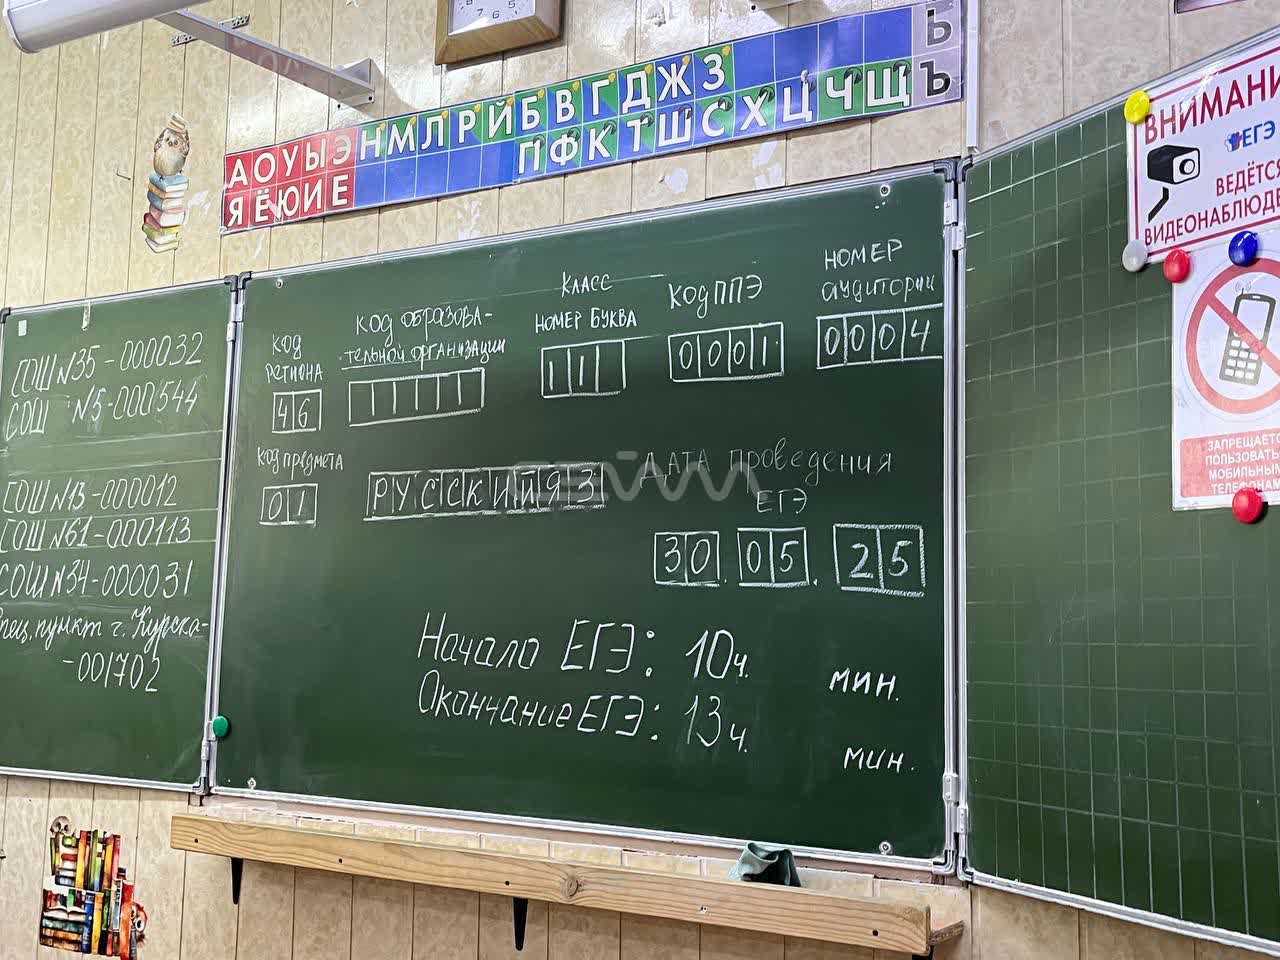 А О У Ы Э Н М Л Р Й Б В Г Д Ж З Ъ
Я Ё Ю И Е П Ф К Т Ш С Х Ц Ч Щ Ь
СОШ №35-000032
СОШ №5-000544
СОШ №13-000012
СОШ №61-000113
СОШ №34-000031
Спец.пункт г. Курска-
-001702
КОД
РЕГИОНА
46
КОД ОБРАЗОВА-
ТЕЛЬНОЙ ОРГАНИЗАЦИИ
КЛАСС
НОМЕР БУКВА
11
КОД ППЭ
0001
НОМЕР
аудитории
0004
КОД ПРЕДМЕТА
01
РУССКИЙ ЯЗ
ДАТА ПРОВЕДЕНИЯ
ЕГЭ
30.05.25
Начало ЕГЭ: 10ч. мин.
Окончание ЕГЭ: 13ч. мин.
СЕЙМ
ВНИМАНИ
ЕГЭ
ВЕДЁТСЯ
ВИДЕОНАБЛЮДЕ
ЗАПРЕЩАЕТС
ПОЛЬЗОВАТЬ
МОБИЛЬНЫМ
ТЕЛЕФОНАМ